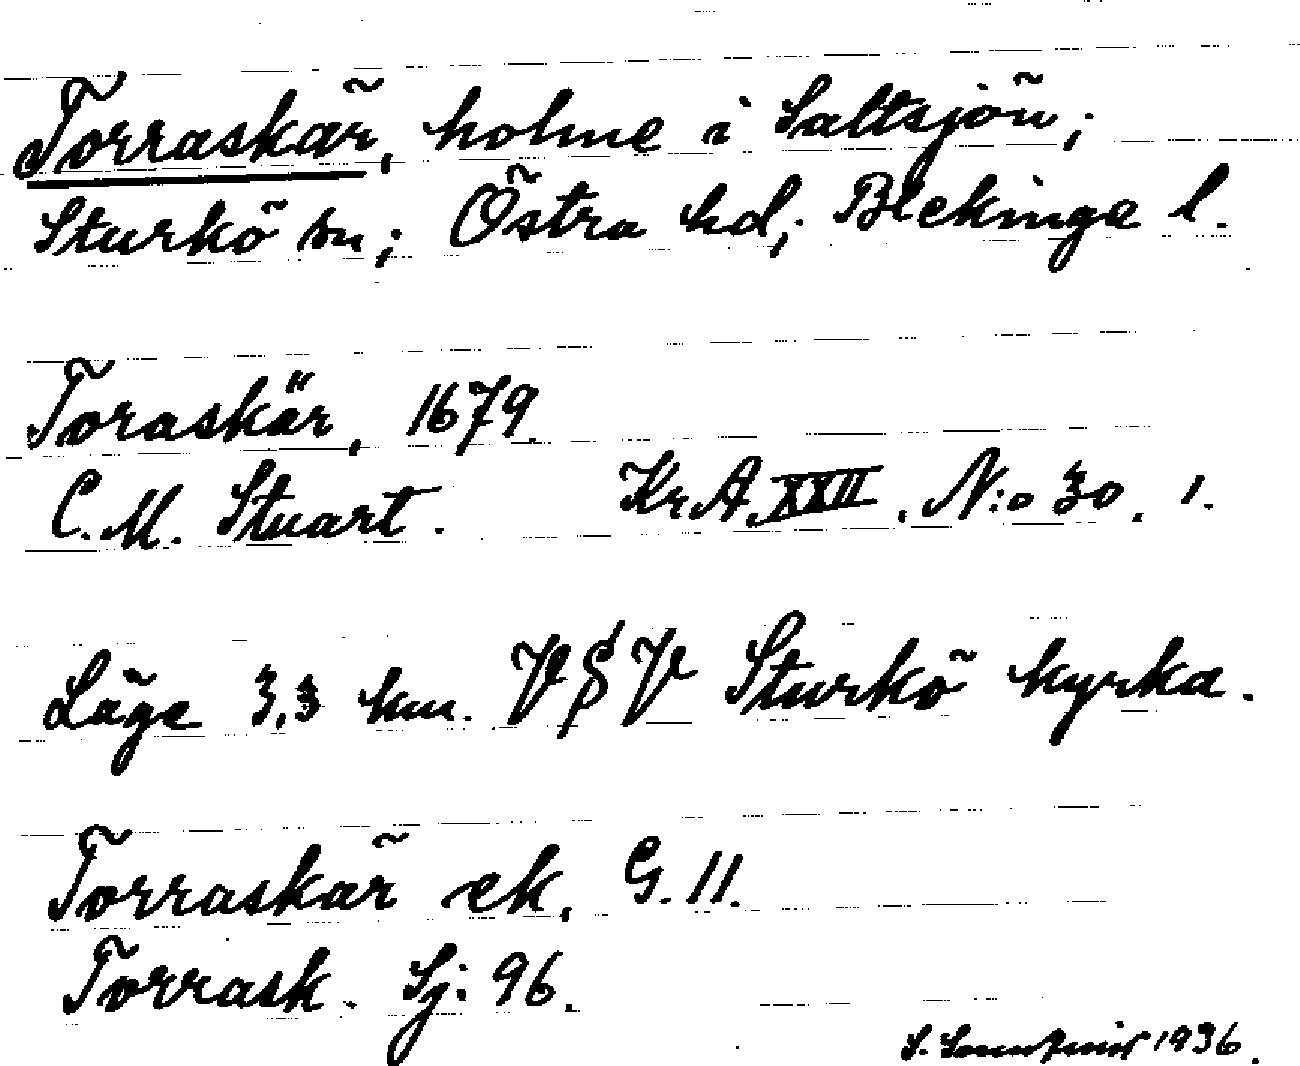 Torraskär, holme i Saltsjön;
Sturkö sn; Östra hd; Blekinge l.
Toraskär, 1679.
C. M. Stuart. Kr. A. XXII. N:o 30. 1.
Läge 3,3 km. V§V Sturkö kyrka.
Torraskär ek. G. 11.
Torrask. Sj: 96.
S. 1936.